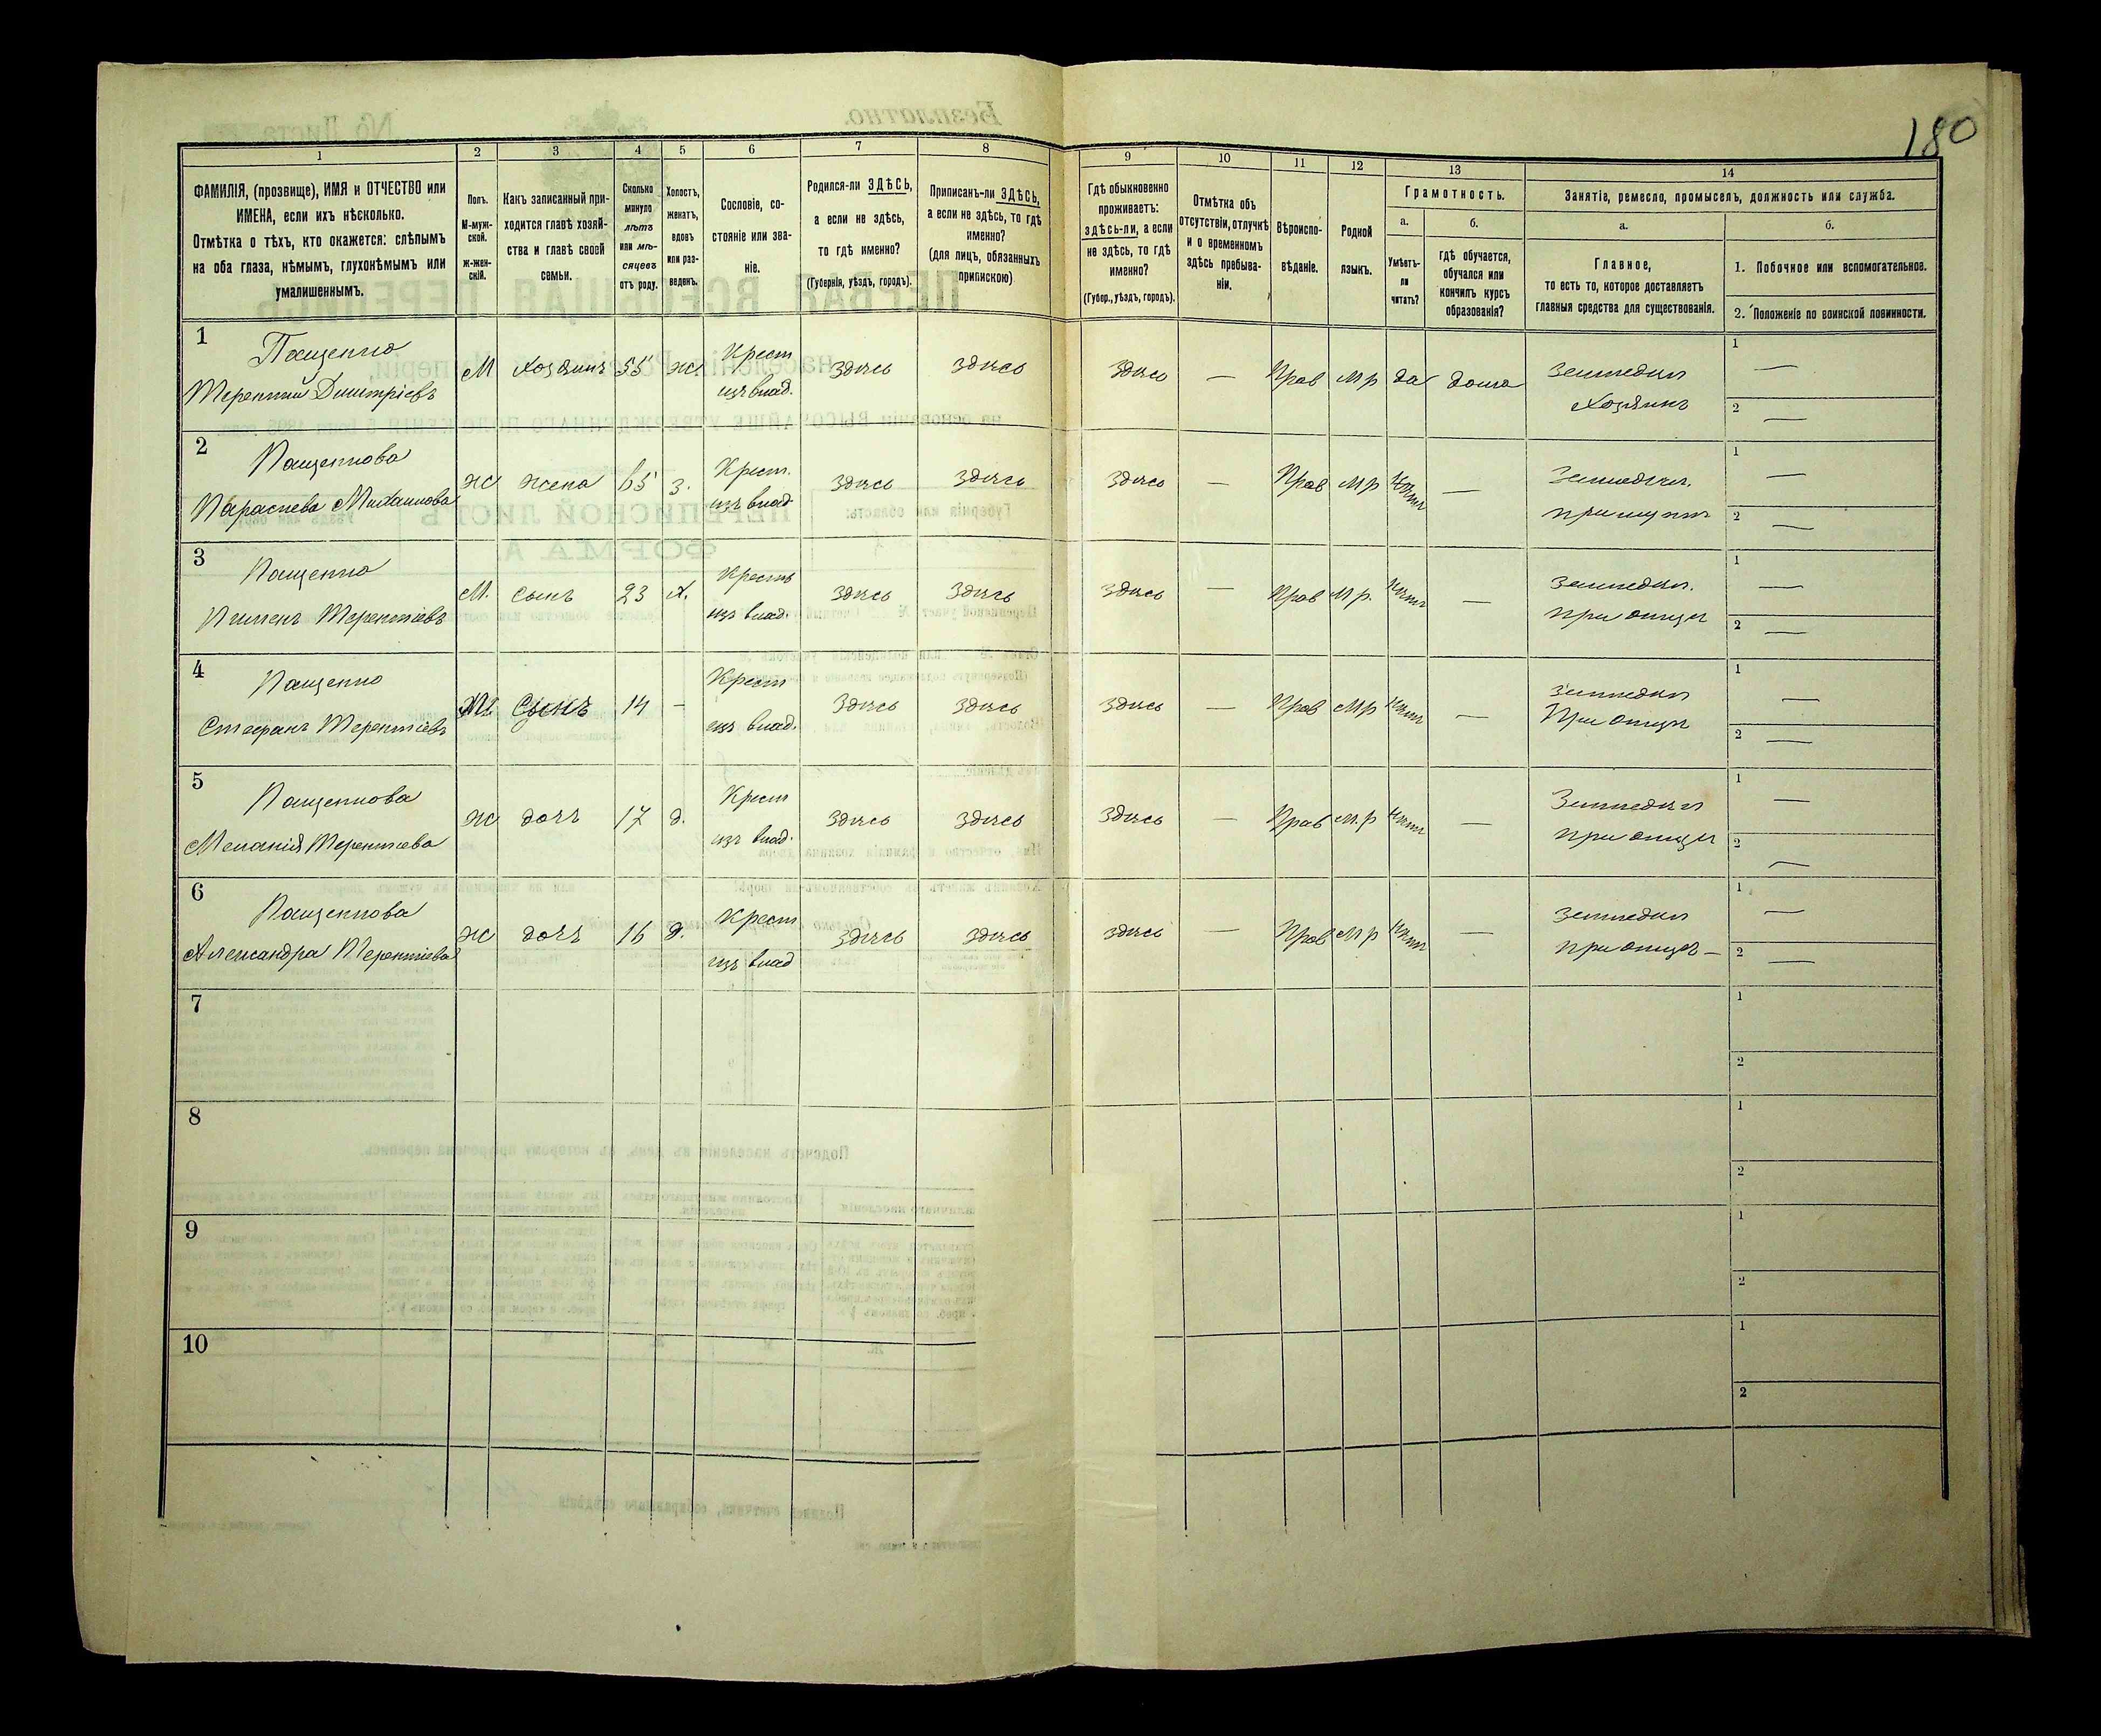 180
1
2
3
4
5
6
7
8
9
10
11
12
13
14
ФАМИЛІЯ, (прозвище), ИМЯ и ОТЧЕСТВО или
ИМЕНА, если ихъ нѣсколько.
Отмѣтка о тѣхъ, кто окажется: слѣпымъ
на оба глаза, нѣмымъ, глухонѣмымъ или
умалишеннымъ.
Полъ.
М-муж-
ской.
Ж-жен-
скій.
Какъ записанный при-
ходится главѣ хозяй-
ства и главѣ своей
семьи.
Сколько
минуло
лѣтъ
или мѣ-
сяцевъ
отъ роду.
Холостъ,
женатъ,
вдовъ
или раз-
веденъ.
Сословіе, со-
стояніе или зва-
ніе.
Родился-ли ЗДѢСЬ,
а если не здѣсь,
то гдѣ именно?
(Губернія, уѣздъ, городъ).
Приписанъ-ли ЗДѢСЬ,
а если не здѣсь, то гдѣ
именно?
(для лицъ, обязанныхъ
припискою)
Гдѣ обыкновенно
проживаетъ:
здѣсь-ли, а если
не здѣсь, то гдѣ
именно?
(Губер., уѣздъ, городъ).
Отмѣтка объ
отсутствіи, отлучкѣ
и о временномъ
здѣсь пребыва-
ніи.
Вѣроиспо-
вѣданіе.
Родной
языкъ.
Грамотность.
а.
Умѣетъ-
ли
читать?
б.
гдѣ обучается,
обучался или
кончилъ курсъ
образованія?
Занятіе, ремесло, промыселъ, должность или служба.
а.
Главное,
то есть то, которое доставляетъ
главныя средства для существованія.
б.
1. Побочное или вспомогательное.
2. Положеніе по воинской повинности.
1
Пащенко
Терентий Дмитріевъ
М хозяинъ 55 ж. Крест
изъ влад.
здѣсь здѣсь здѣсь — Прав мр да дома земледѣл
Хозяинъ
1 —
2 —
2
Пащенкова
Параскева Михаилова
ж жена 65 з. Крест.
изъ влад.
здѣсь здѣсь здѣсь — Прав мр нѣтъ — Земледѣл.
при мужѣ
1 —
2 —
3
Пащенко
Пименъ Терентіевъ
М. сынъ 23 х. Крестъ
изъ влад.
здѣсь здѣсь здѣсь — Прав мр. нѣтъ — земледѣл.
при отцѣ
1 —
2 —
4
Пащенко
Стефанъ Терентіевъ
М Сынъ 14 - Крест
изъ влад.
здѣсь здѣсь здѣсь — Прав мр нѣтъ — земледѣл
При отцѣ
1 —
2 —
5
Пащенкова
Меланія Терентіева
ж дочь 17 д. Крест
изъ влад.
здѣсь здѣсь здѣсь — Прав м.р нѣтъ — Земледѣл
при отцѣ
1 —
2 —
6
Пащенкова
Александра Терентіева
ж дочь 16 д. Крест
изъ влад
здѣсь здѣсь здѣсь — Прав мр нѣтъ — земледѣл
при отцѣ —
1 —
2 —
7
1
2
8
1
2
9
1
2
10
1
2